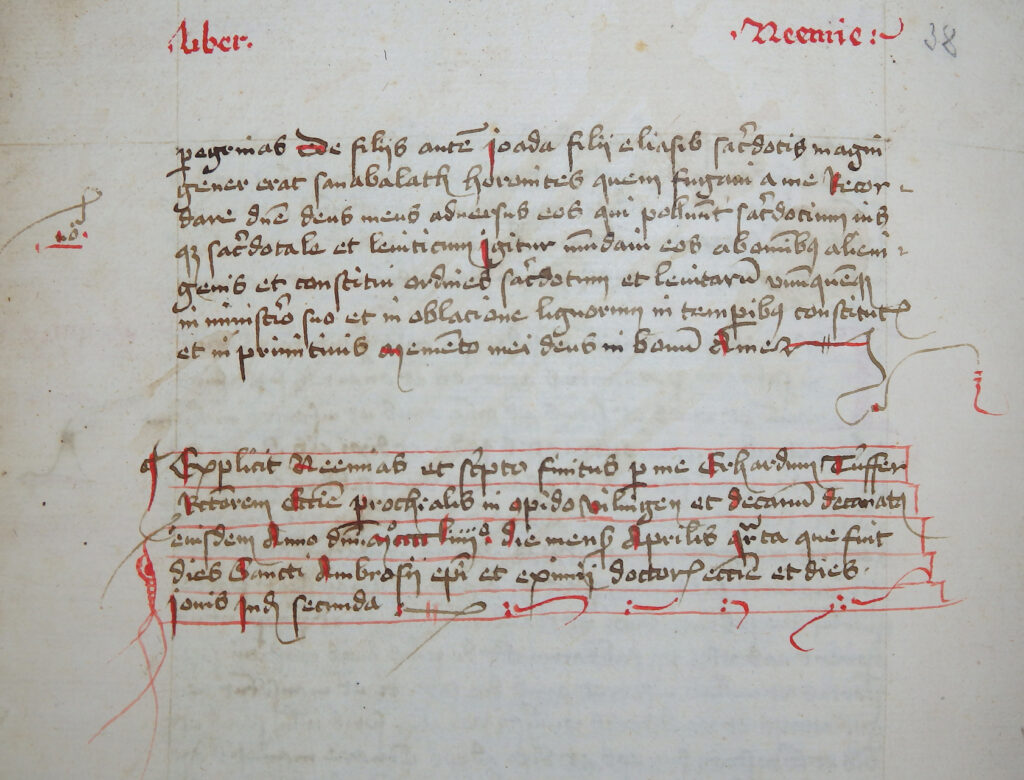 Liber. Neemie: 38
pegrinas De filiis autē Joada filii eliasib sac̄dotis magni
gener erat sanabalath horonites quem fugavi a me Recor-
dare dn̄e deus meus adversus eos qui polluūt sac̄dotium ius
qꝫ sac̄dotale et leviticum Igitur mūdavi eos ab omībꝫ alieni-
no
genis et constitui ordines sac̄dotum et levitarū unūquēqꝫ
in minist̄io suo et in oblacione lignorum in tempibꝫ constitut
et in primitivis Memēto mei deus in bonū Amen
Explicit Neemias et sc̄pto finitus p me Erhardum Tūffer
Rectorem Ecc̄ie prochialis in opido Vilingen et decanū decanatꝫ
eiusdem Anno dn̄i mº cccc liiiiº die mens Aprilis qrta que fuit
dies Sancti Ambrosii ep̄i et eximii doctor ecc̄ie et dies
Jovis Ind secunda